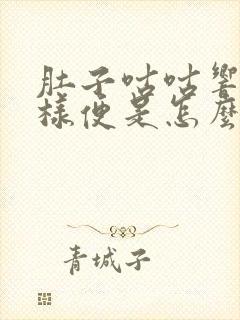 肚子咕咕響
樣便是怎麼
青城子